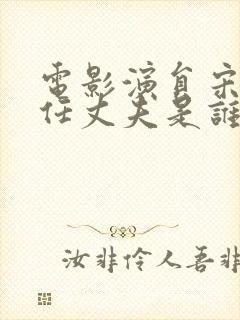 電影演員宋
任丈夫是誰
汝非伶人吾非